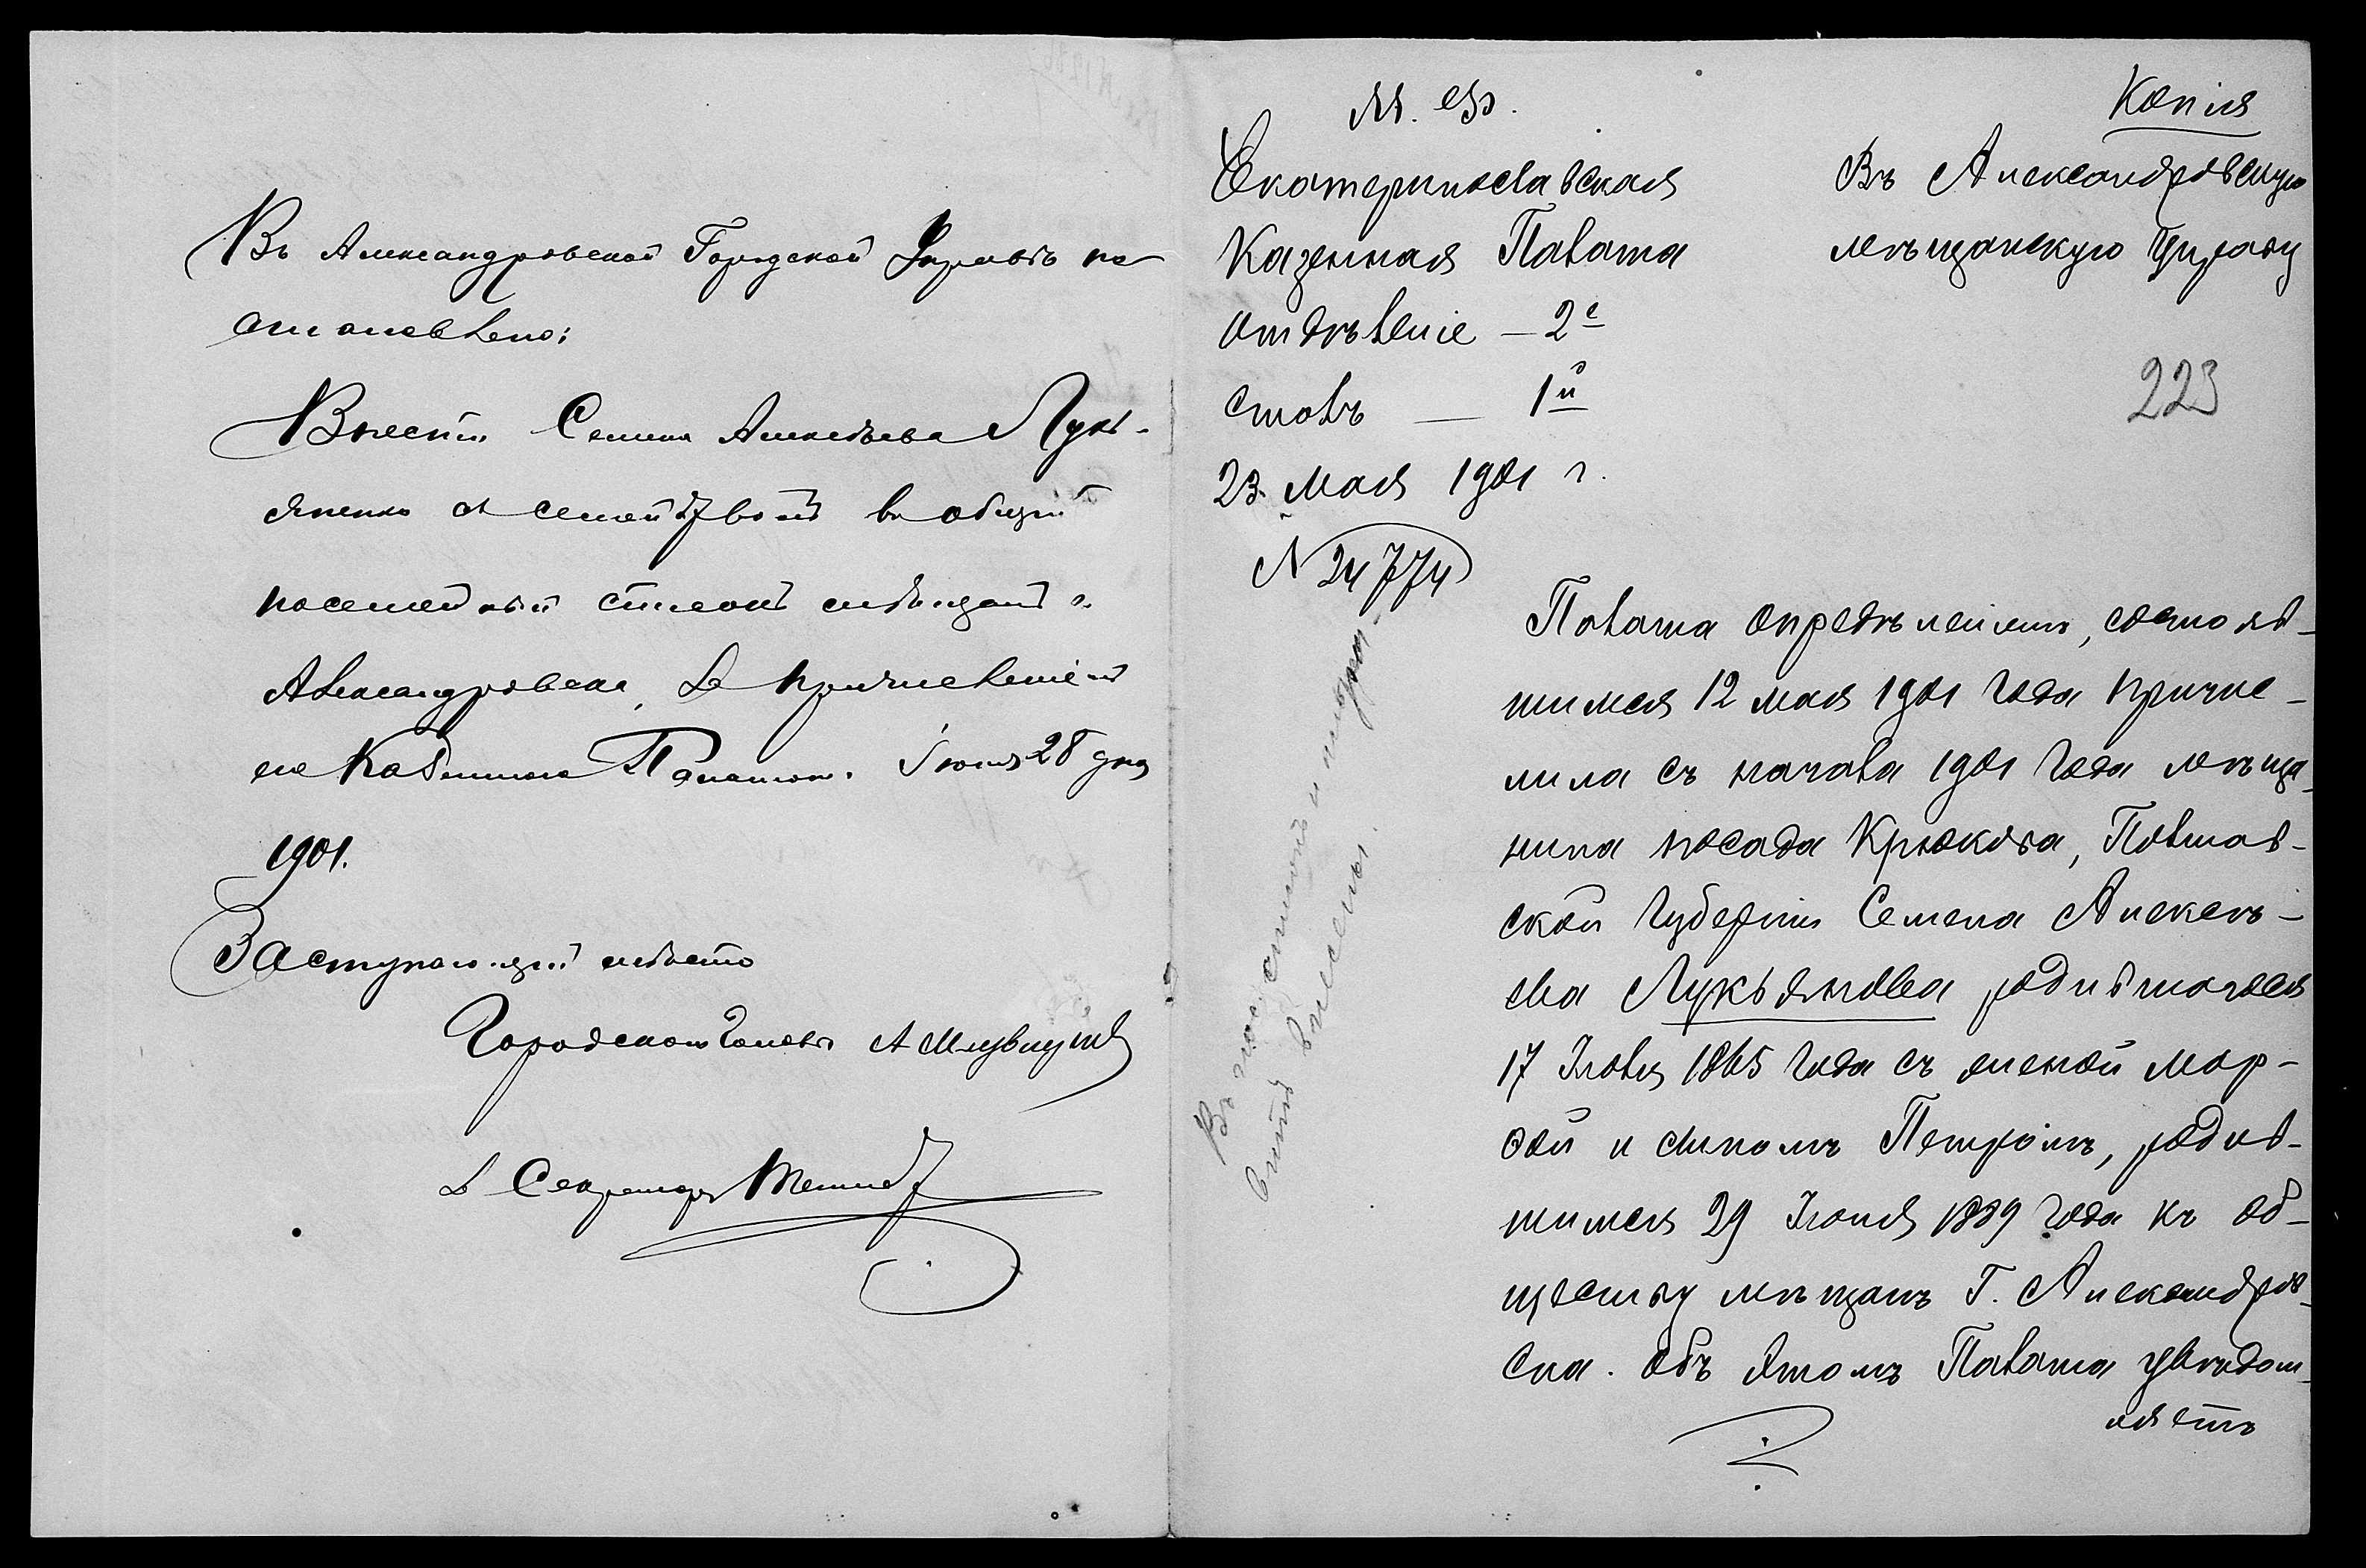 Въ Александровской Городской Управѣ по-
становлено:
Внести Семена Алексѣева Лукь-
яненко съ семействомъ въ общій
посемейный списокъ мѣщанъ г.
Александровска, съ причисленіемъ
его Казенною Палатою. Іюня 28 дня
1901.
Заступающій мѣсто
Городского Головы
Секретарь
Копія
М. Ф.
Екатеринославская
Казенная Палата
Отдѣленіе — 2е
Столъ — 1й
23 Мая 1901 г.
N 24774
Въ Александровскую
мѣщанскую Управу
223
Въ посемейный
списокъ внесены.
Палата опредѣленіемъ, состояв-
шимся 12 мая 1901 года причис-
лила съ начала 1901 года мѣща-
нина посада Крюкова, Полтав-
ской Губерніи Семена Алексѣ-
ева Лукьянова родившагося
17 Іюля 1865 года съ женой Мар-
ѳой и сыномъ Петромъ, родив-
шимся 29 Іюня 1889 года къ об-
ществу мѣщанъ Г. Александров-
ска. Объ этомъ Палата увѣдом-
ляетъ